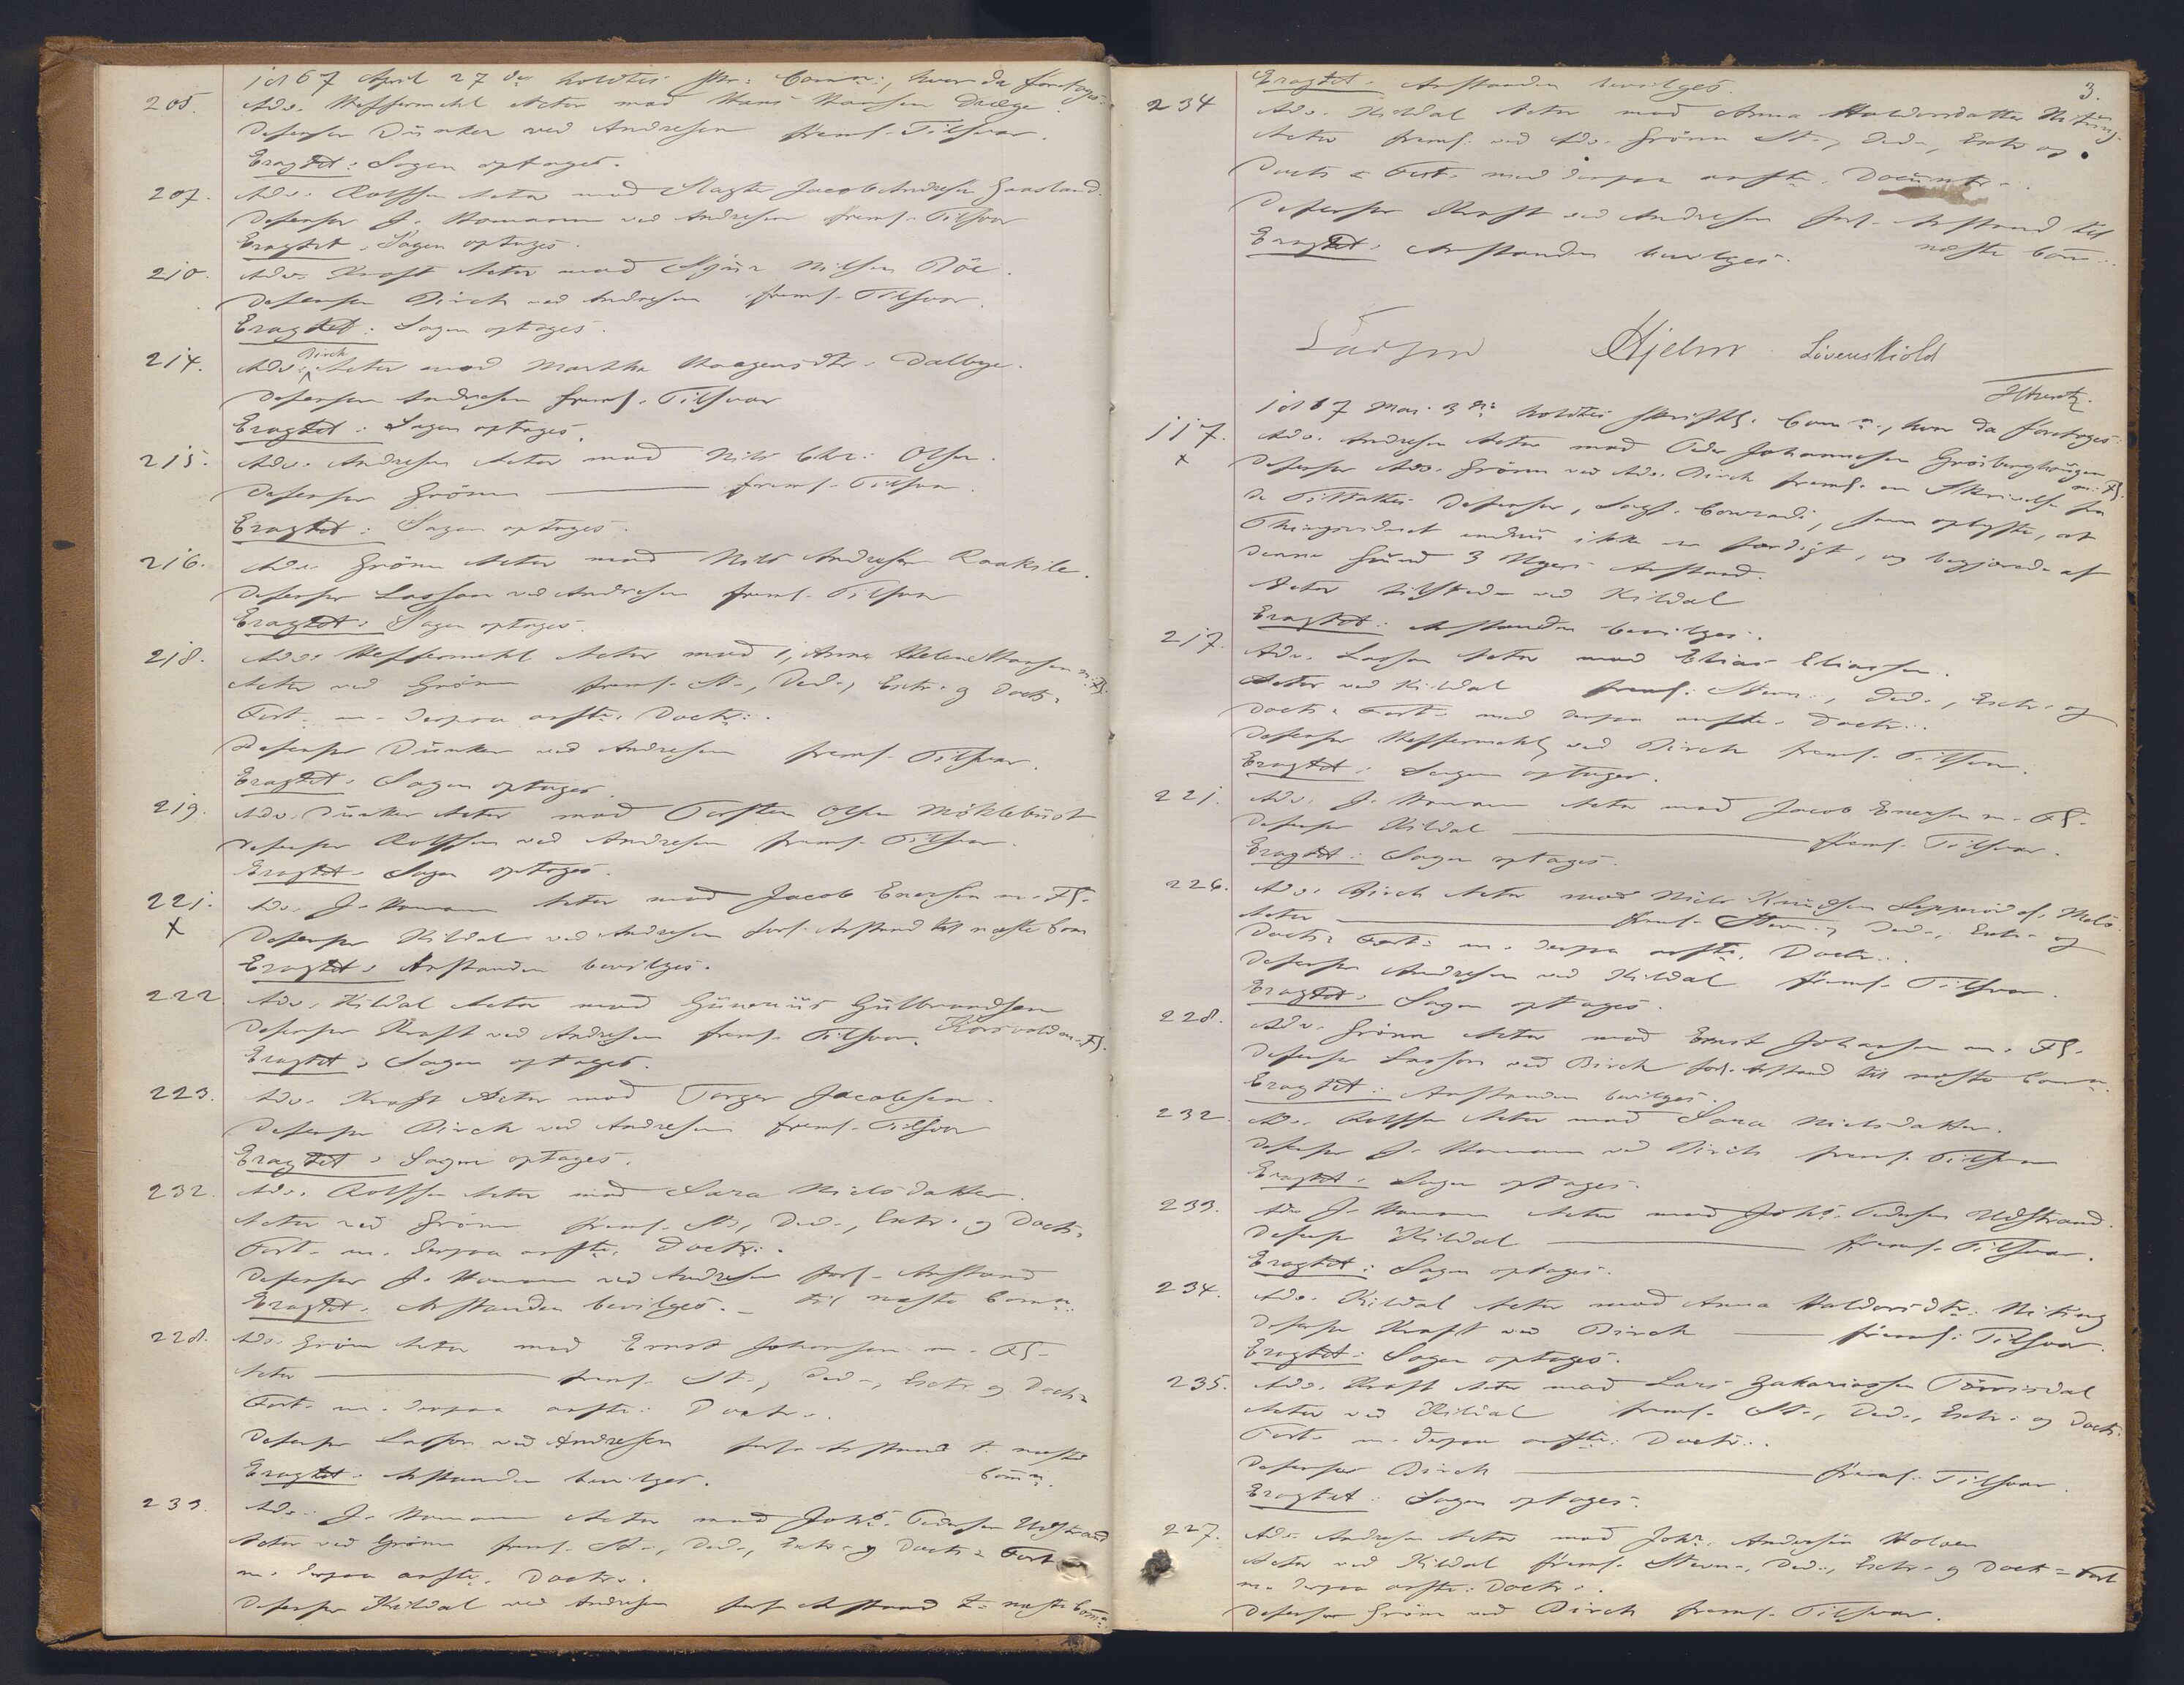 1867 April 27de holdtes skr: Comn:, hvor da foretoges:
205. Adv. Heffermehl Actor mod Hans Hansen Drage.
Defensor Dunker ved Andresen freml. Tilsvar.
Eragtet: Sagen optages.
207. Adv. Rolfsen Actor mod Slagter Jacob Andresen Gaasland.
Defensor J. Homann ved Andresen freml. Tilsvar
Eragtet: Sagen optages.
210. Adv. Kraft Actor mod Sjur Nilsen Röe.
Defensor Birch ved Andresen freml. Tilsvar.
Eragtet: Sagen optages.
214. Adv. Birch Actor mod Martha Haagensdtr. Dalbye.
Defensor Andresen freml. Tilsvar
Eragtet: Sagen optages.
215. Adv. Andresen Actor mod Nils Chr. Olsen.
Defensor Grönn ——— freml. Tilsvar.
Eragtet: Sagen optages.
216. Adv. Grönn Actor mod Nils Andresen Raakile.
Defensor Lasson ved Andresen freml. Tilsvar
Eragtet: Sagen optages.
218. Adv. Heffermehl Actor mod 1, Anne Helene Hansen m. Fl.
Actor ved Grönn freml. St., Ded., Extr. og Docts.
Fort. m. derpaa anfte. Doctr.
Defensor Dunker ved Andresen freml. Tilsvar.
Eragtet: Sagen optages.
219. Adv. Dunker Actor mod Torsten Olsen Möklebust
Defensor Rolfsen ved Andresen freml. Tilsvar.
Eragtet: Sagen optages.
221. Adv. J. Homann Actor mod Jacob Enersen m. Fl.
x Defensor Kildal ved Andresen forl. Anstand til næste Com
Eragtet: Anstanden bevilges.
222. Adv. Kildal Actor mod Gunerius Gulbrandsen
Defensor Kraft ved Andresen freml. Tilsvar. Korsvold m. Fl.
Eragtet: Sagen optages.
223. Adv. Kraft Actor mod Torger Jacobsen.
Defensor Birch ved Andresen freml. Tilsvar
Eragtet: Sagen optages.
232. Adv. Rolfsen Actor mod Sara Nielsdatter.
Actor ved Grönn freml. St., Ded., Extr. og Docts.
Fort. m. derpaa anfte. Doctr.
Defensor J. Homann ved Andresen forl. Anstand
Eragtet: Anstanden bevilges. — til næste Comn.
228. Adv. Grönn Actor mod Ernst Johansen m. Fl.
Actor ——— freml. St., Ded., Extr. og Docts
Fort. m. derpaa anfte. Doctr.
Defensor Lasson ved Andresen forl. Anstand t. næste
Eragtet: Anstanden bevilges. Comn.
233. Adv. J. Homann Actor mod Johs. Pedersen Udstrand
Actor ved Grönn freml. St., Ded., Extr. og Docts Fort
m. derpaa anfte. Doctr.
Defensor Kildal ved Andresen forl. Anstand t. næste Comn:
3.
Eragtet: Anstanden bevilges.
234 Adv. Kildal Actor mod Anna Haldorsdatter Niting.
Actor freml. ved Adv. Grönn St., Ded., Extr og
Docts Fort. med derpaa anfte. Documtr.
Defensor Kraft ved Andresen forl. Anstand til
Eragtet: Anstanden bevilges. næste Com.
Lasson Hjelm Lövenskiold
1867 Mai 3die holdtes skriftl. Comn., hvor da foretoges
117. Adv. Andresen Actor mod Peder Johannesen Grösberghaugen m. Fl.
x Defensor Adv. Grönn ved Adv. Birch freml. en Skrivelse fra
de Tiltaltes Defensor, Sagf. Conradi, som oplyste, at
Thingsvidnet endnu ikke er færdigt, og begjærede af
denne Grund 3 Ugers Anstand.
Actor tilstede ved Kildal
Eragtet: Anstanden bevilges.
217. Adv. Lasson Actor mod Elias Eliassen.
Actor ved Kildal freml. Stevn., Ded., Extr. og
Docts Fort. med derpaa anfte. Doctr.
Defensor Heffermehl ved Birch freml. Tilsvar.
Eragtet: Sagen optages.
221. Adv. J. Homann Actor mod Jacob Enersen m. Fl.
Defensor Kildal ——— freml. Tilsvar.
Eragtet: Sagen optages.
226. Adv. Birch Actor mod Niels Knudsen Lepperöd
Actor ——— freml. Stevn., Ded., Extr. og
Docts Fort. m. derpaa anfte. Doctr.
Defensor Andresen ved Kildal freml. Tilsvar.
Eragtet: Sagen optages.
228. Adv. Grönn Actor mod Ernst Johansen m. Fl.
Defensor Lasson ved Birch forl. Anstand til næste Comn.
Eragtet: Anstanden bevilges.
232. Adv. Rolfsen Actor mod Sara Nielsdatter.
Defensor J. Homann ved Birch freml. Tilsvar
Eragtet: Sagen optages.
233. Adv. J. Homann Actor mod Johs. Pedersen Udstrand.
Defensor Kildal ——— freml. Tilsvar.
Eragtet: Sagen optages.
234. Adv. Kildal Actor mod Anna Haldorsdtr. Niting
Defensor Kraft ved Birch — freml. Tilsvar.
Eragtet: Sagen optages.
235. Adv. Kraft Actor mod Lars Zakariassen Tönnisdal
Actor ved Kildal freml. St., Ded., Extr. og Docts
Fort. m. derpaa anfte. Doctr.
Defensor Birch ——— freml. Tilsvar.
Eragtet: Sagen optages.
227. Adv. Andresen Actor mod Johs. Andersen Holven
Actor ved Kildal freml. Stevn., Ded., Extr. og Docts Fort
m. derpaa anfte. Doctr.
Defensor Grönn ved Birch freml. Tilsvar.